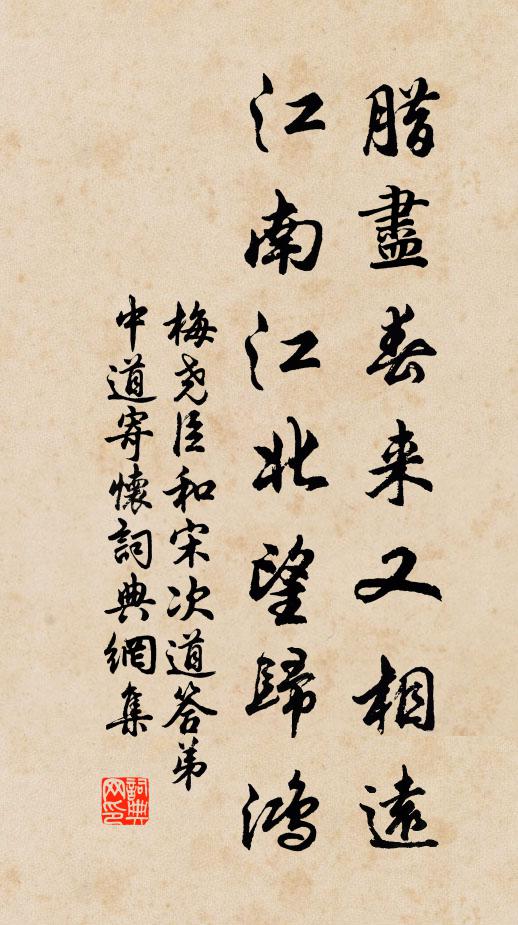 腊盡春来又相遠
江南江北望歸鴻
梅尧臣和宋次道答弟
中道寄懷詞典網集
詞典
网印